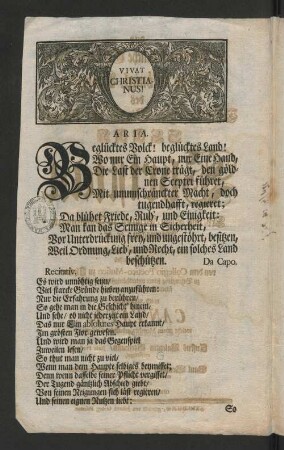 VIVAT
CHRISTIA-
NUS!
ARIA.
Beglücktes Volck! beglücktes Land!
Wo nur Ein Haupt, nur Eine Hand,
Die Last der Crone trägt, den güld-
nen Scepter führet,
Mit unumschränckter Macht, doch
tugendhafft, regieret:
Da blühet Friede, Ruh', und Einigkeit:
Man kan das Seinige in Sicherheit,
Vor Unterdrückung frey, und ungestöhrt, besitzen,
Weil Ordnung, Lieb, und Recht, ein solches Land
beschützen.
Da Capo.
Recitativ.
Es wird unnöthig seyn/
Viel starcke Gründe hierin anzuführen:
Nur die Erfahrung zu berühren/
So gehe man in die Geschicht' hinein:
Und sehe/ ob nicht jederzeit ein Land/
Das nur Ein absolutes Haupt erkannt/
Im grösten Flor gewesen.
Und wird man ja das Gegentheil
Zuweilen lesen/
So thut man nicht zu viel/
Wenn man dem Haupte selbiges beymisset;
Denn wenn dasselbe seiner Pflicht vergisset/
Der Tugend gäntzlich Abscheid giebt/
Von seinen Neigungen sich läst regieren/
Und seinen eignen Nutzen liebt:
So